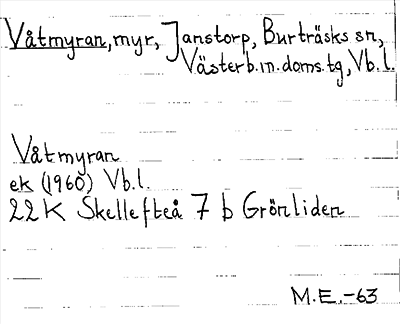 Våtmyran, myr, Janstorp, Burträsks sn,
Västerb. m. doms. tg, Vb. l.
Våtmyran
ek (1960) Vb. l.
22 K Skellefteå 7 b Grönliden
M.E.-63